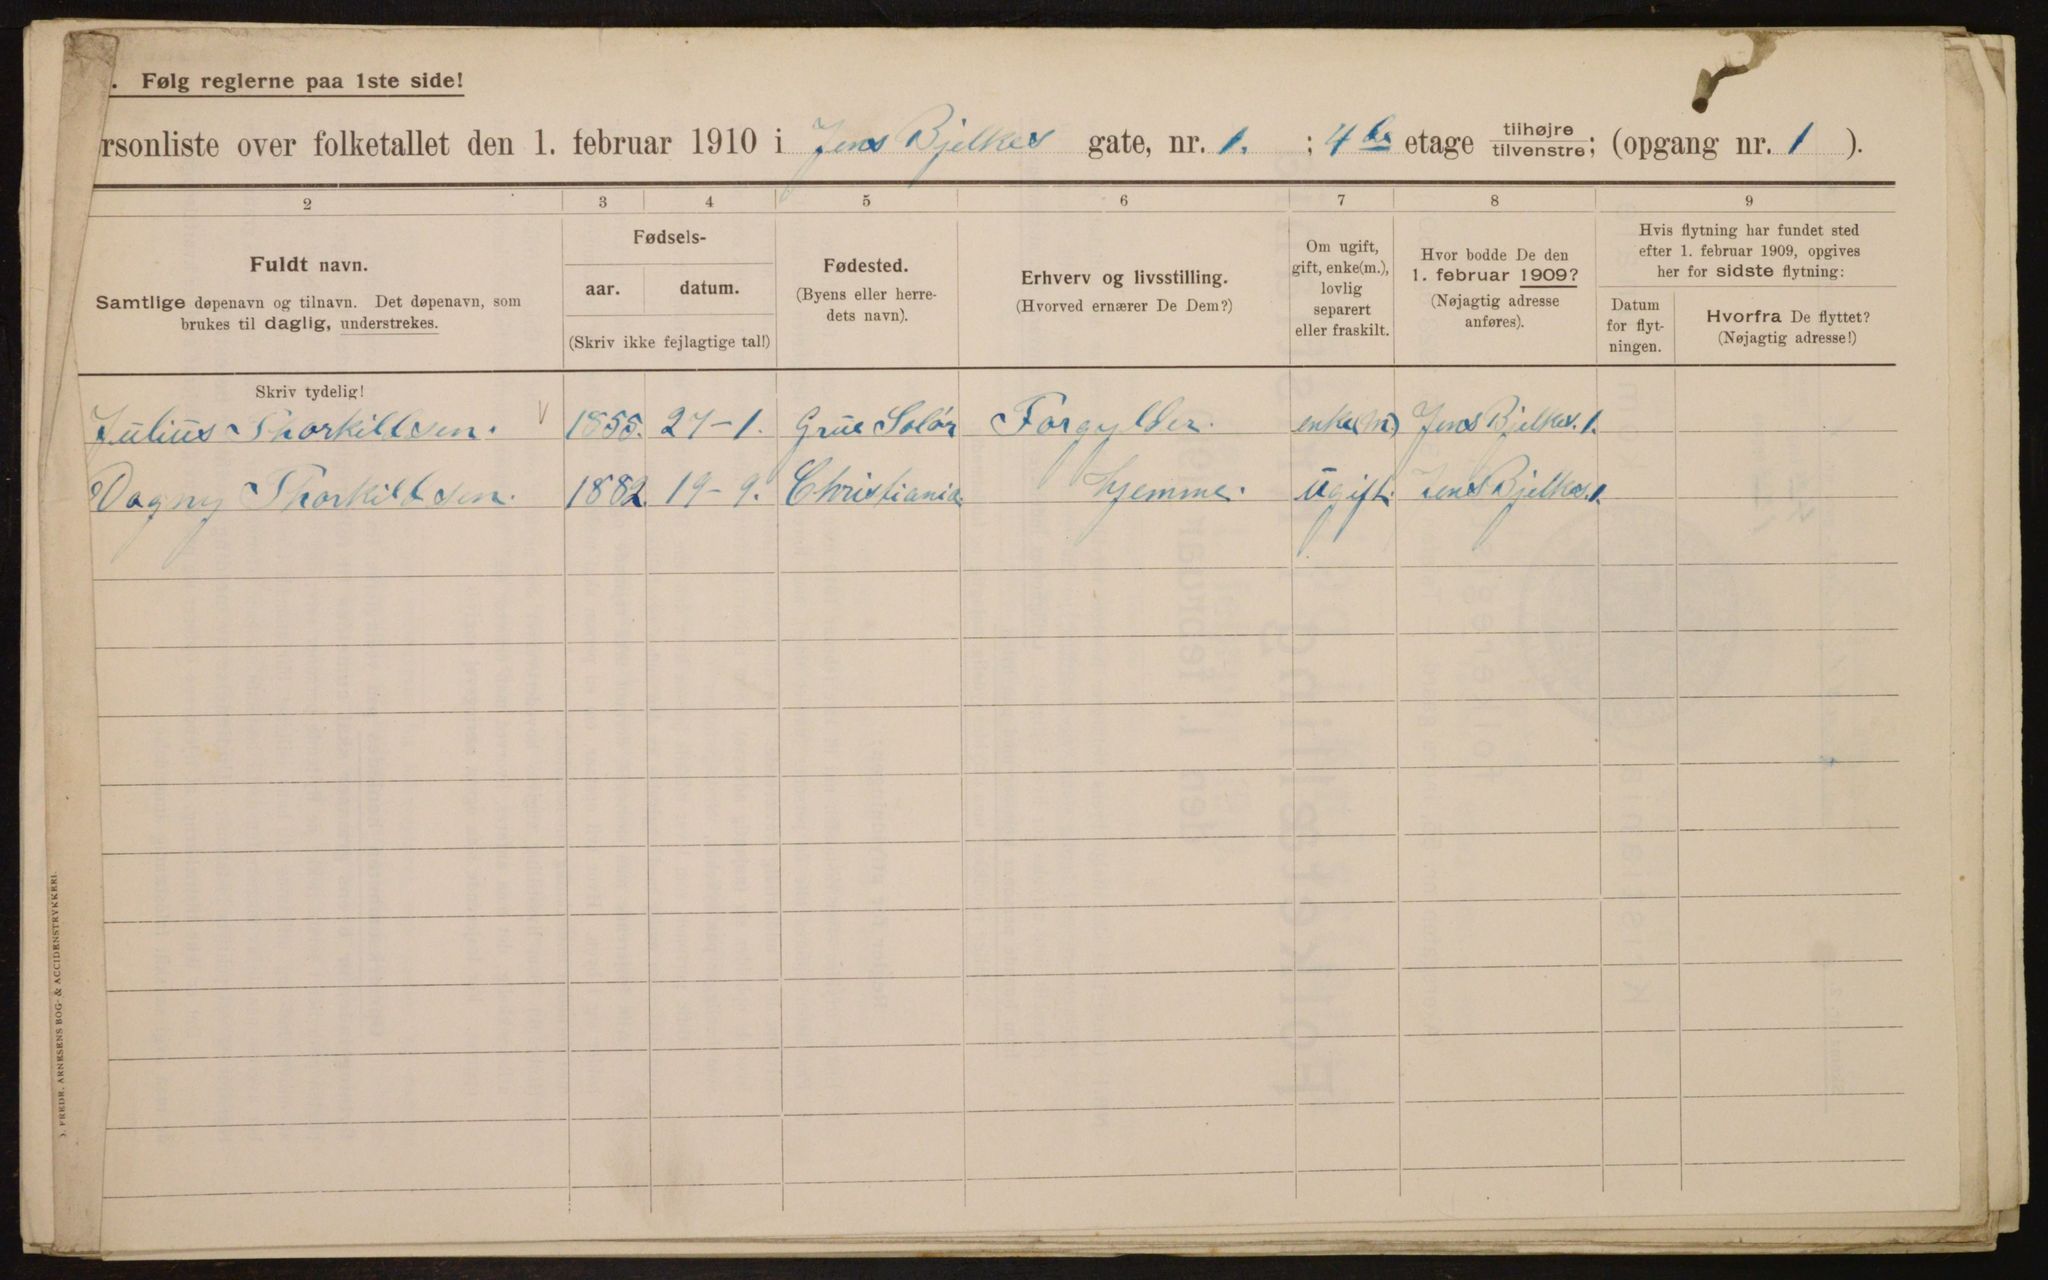 . Følg reglerne paa 1ste side!
rsonliste over folketallet den 1. februar 1910 i Jens Bjelkes gate, nr. 1. ; 4de etage tilhøjre tilvenstre; (opgang nr. 1 ).
2 3 4 5 6 7 8 9
Fuldt navn.
Samtlige døpenavn og tilnavn. Det døpenavn, som
brukes til daglig, understrekes.
Fødsels-
aar. datum.
(Skriv ikke fejlagtige tal!)
Fødested.
(Byens eller herre-
dets navn).
Erhverv og livsstilling.
(Hvorved ernærer De Dem?)
Om ugift,
gift, enke(m.),
lovlig
separert
eller fraskilt.
Hvor bodde De den
1. februar 1909?
(Nøjagtig adresse
anføres).
Hvis flytning har fundet sted
efter 1. februar 1909, opgives
her for sidste flytning:
Datum
for flyt-
ningen.
Hvorfra De flyttet?
(Nøjagtig adresse!)
Skriv tydelig!
Julius Thorkildsen. 1855. 27-1. Grue Solør Forgylder. enke(m.) Jens Bjelkes. 1.
Dagny Thorkildsen. 1882. 19-9. Christiania hjemme. ugift. Jens Bjelkes. 1.
. FREDR. ARNESENS BOG- & ACCIDENSTRYKKERI.